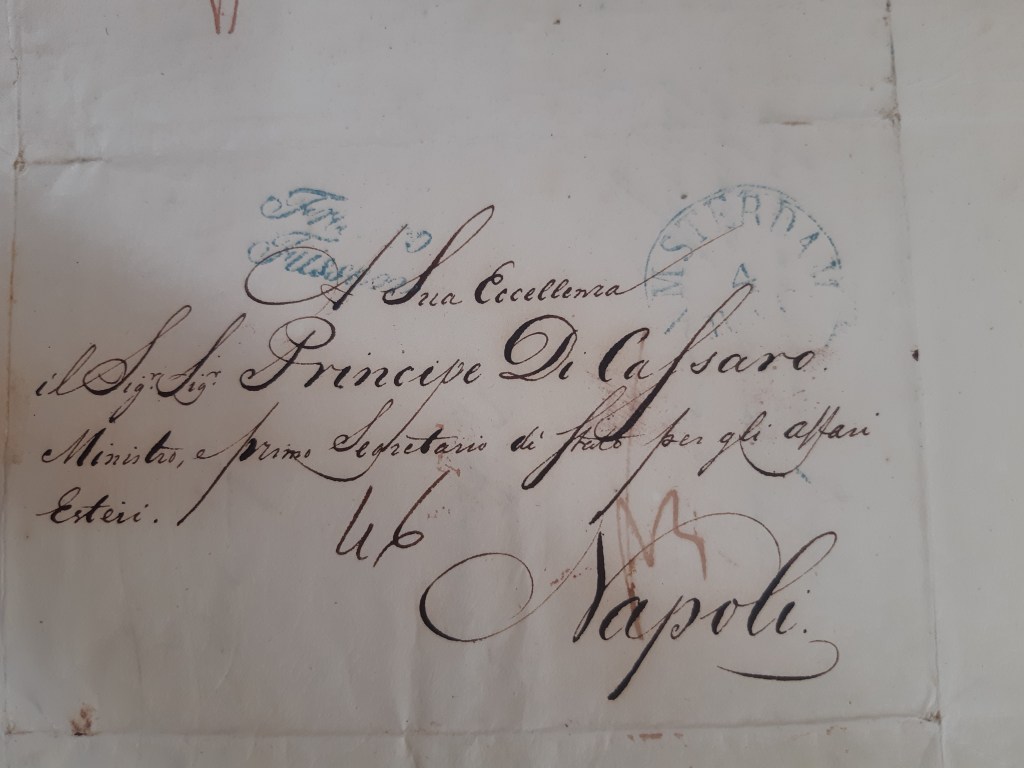 Fra
AMSTERDAM
4
A Sua Eccellenza
il Sigr. Sigr. Principe Di Cassaro.
Ministro, e primo Segretario di Stato per gli affari
Esteri.
46
Napoli.